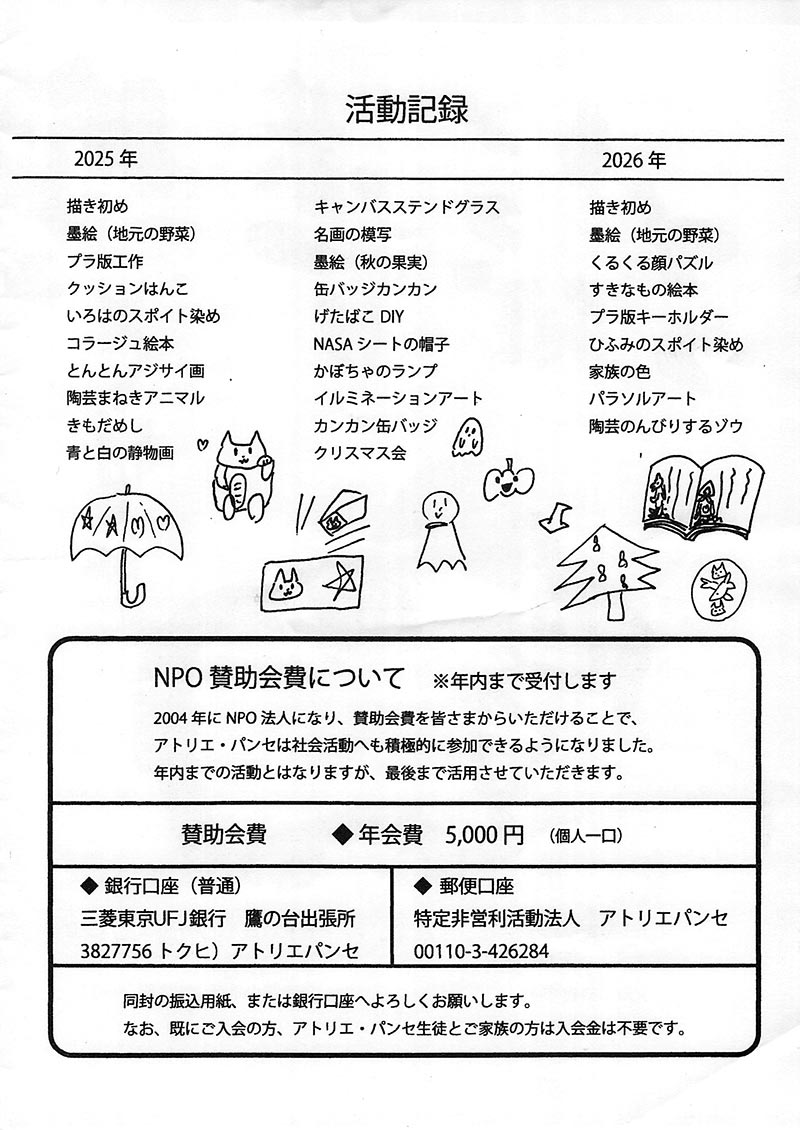 活動記録
2025 年
2026 年
描き初め
墨絵（地元の野菜）
プラ版工作
クッションはんこ
いろはのスポイト染め
コラージュ絵本
とんとんアジサイ画
陶芸まねきアニマル
きもだめし
青と白の静物画
キャンバスステンドグラス
名画の模写
墨絵（秋の果実）
缶バッジカンカン
げたばこ DIY
NASA シートの帽子
かぼちゃのランプ
イルミネーションアート
カンカン缶バッジ
クリスマス会
描き初め
墨絵（地元の野菜）
くるくる顔パズル
すきなもの絵本
プラ版キーホルダー
ひふみのスポイト染め
家族の色
パラソルアート
陶芸のんびりするゾウ
NPO 賛助会費について　※年内まで受付します
2004 年に NPO 法人になり、賛助会費を皆さまからいただけることで、
アトリエ・パンセは社会活動へも積極的に参加できるようになりました。
年内までの活動とはなりますが、最後まで活用させていただきます。
賛助会費　◆ 年会費　5,000 円　（個人一口）
◆ 銀行口座（普通）
三菱東京UFJ銀行　鷹の台出張所
3827756 トクヒ）アトリエパンセ
◆ 郵便口座
特定非営利活動法人　アトリエパンセ
00110-3-426284
同封の振込用紙、または銀行口座へよろしくお願いします。
なお、既にご入会の方、アトリエ・パンセ生徒とご家族の方は入会金は不要です。